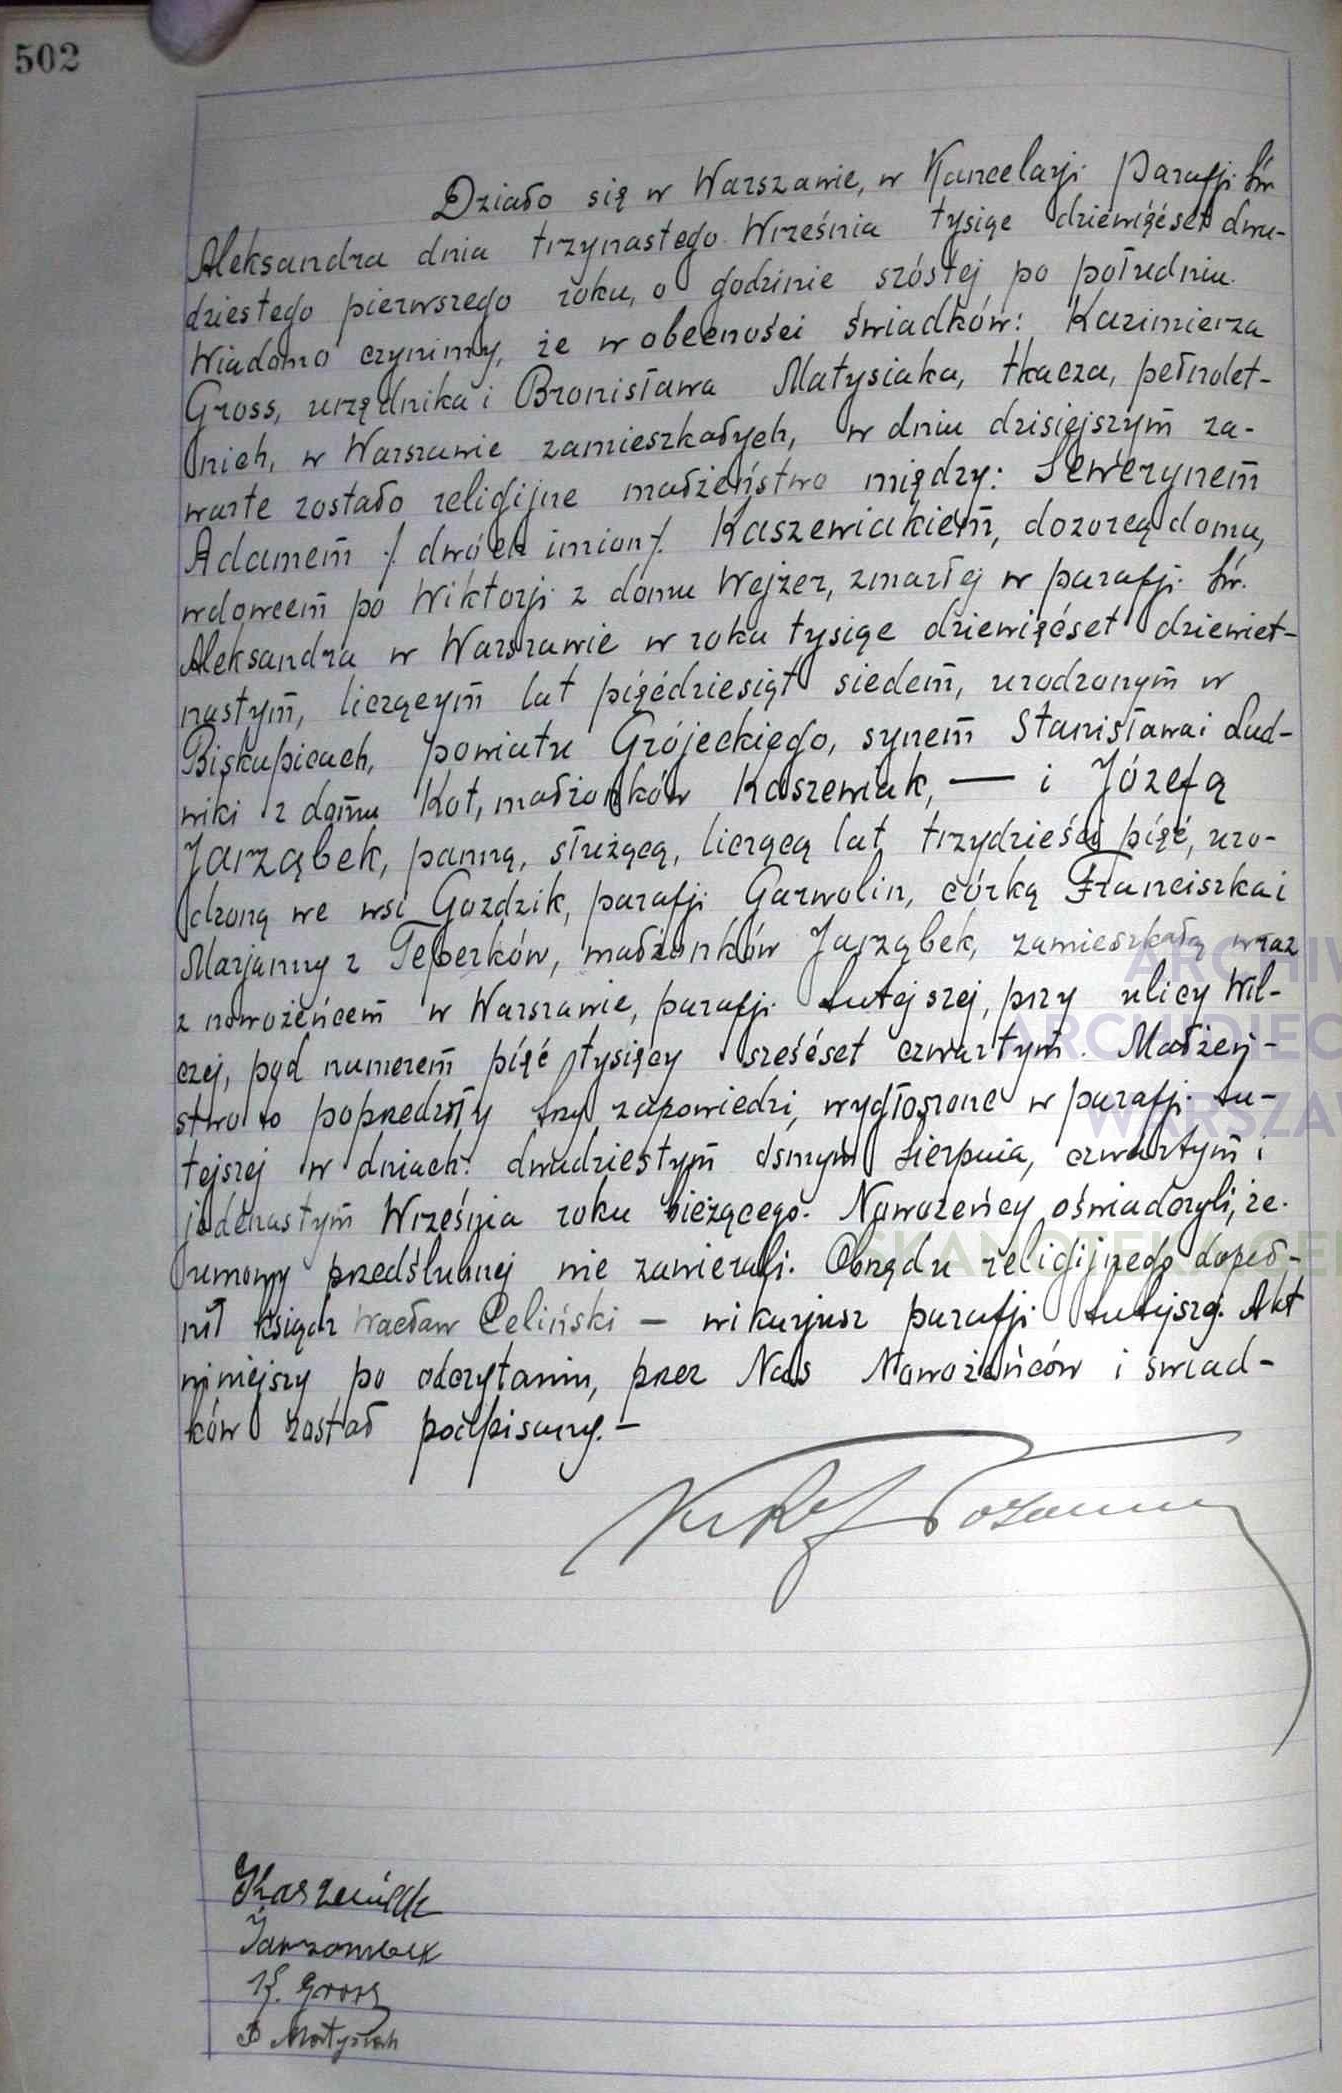 502
Działo się w Warszawie, w Kancelarji Parafji Św
Aleksandra dnia trzynastego Września tysiąc dziewięćset dwu-
dziestego pierwszego roku, o godzinie szóstej po południu.
Wiadomo czynimy, że w obecności świadków: Kazimierza
Gross, urzędnika i Bronisława Matysiaka, tkacza, pełnolet-
nich, w Warszawie zamieszkałych, w dniu dzisiejszym za-
warte zostało religijne małżeństwo między: Sewerynem
Adamem /. dwóch imion /. Kaszewiakiem, dozorcą domu,
wdowcem po Wiktorji z domu Wejzer, zmarłej w parafji Św.
Aleksandra w Warszawie w roku tysiąc dziewięćset dziewięt-
nastym, liczącym lat pięćdziesiąt siedem, urodzonym w
Biskupicach, powiatu Grójeckiego, synem Stanisława i Lud-
wiki z domu Kot, małżonków Kaszewiak, — i Józefą
Jarząbek, panną, służącą, liczącą lat trzydzieści pięć, uro-
dzoną we wsi Gozdzik, parafji Garwolin, córką Franciszka i
Marjanny z Teperków, małżonków Jarząbek, zamieszkałą wraz
z nowożeńcem w Warszawie, parafji tutejszej, przy ulicy Wil-
czej, pod numerem pięć tysięcy sześćset czwartym. Małżeń-
stwo to poprzedziły trzy zapowiedzi, wygłoszone w parafji tu-
tejszej w dniach: dwudziestym ósmym Sierpnia, czwartym i
jedenastym Września roku bieżącego. Nowożeńcy oświadczyli, że
umowy przedślubnej nie zawierali. Obrzędu religijnego dopeł-
nił ksiądz Wacław Celiński — wikarjusz parafji tutejszej. Akt
niniejszy po odczytaniu, przez Nas Nowożeńców i świad-
ków został podpisany. —
Kaszewiak
Jarzombek
K. Gross
B Matysiak
ARCHIW
ARCHIDIEC
WARSZA
SKANOTEKA GEN